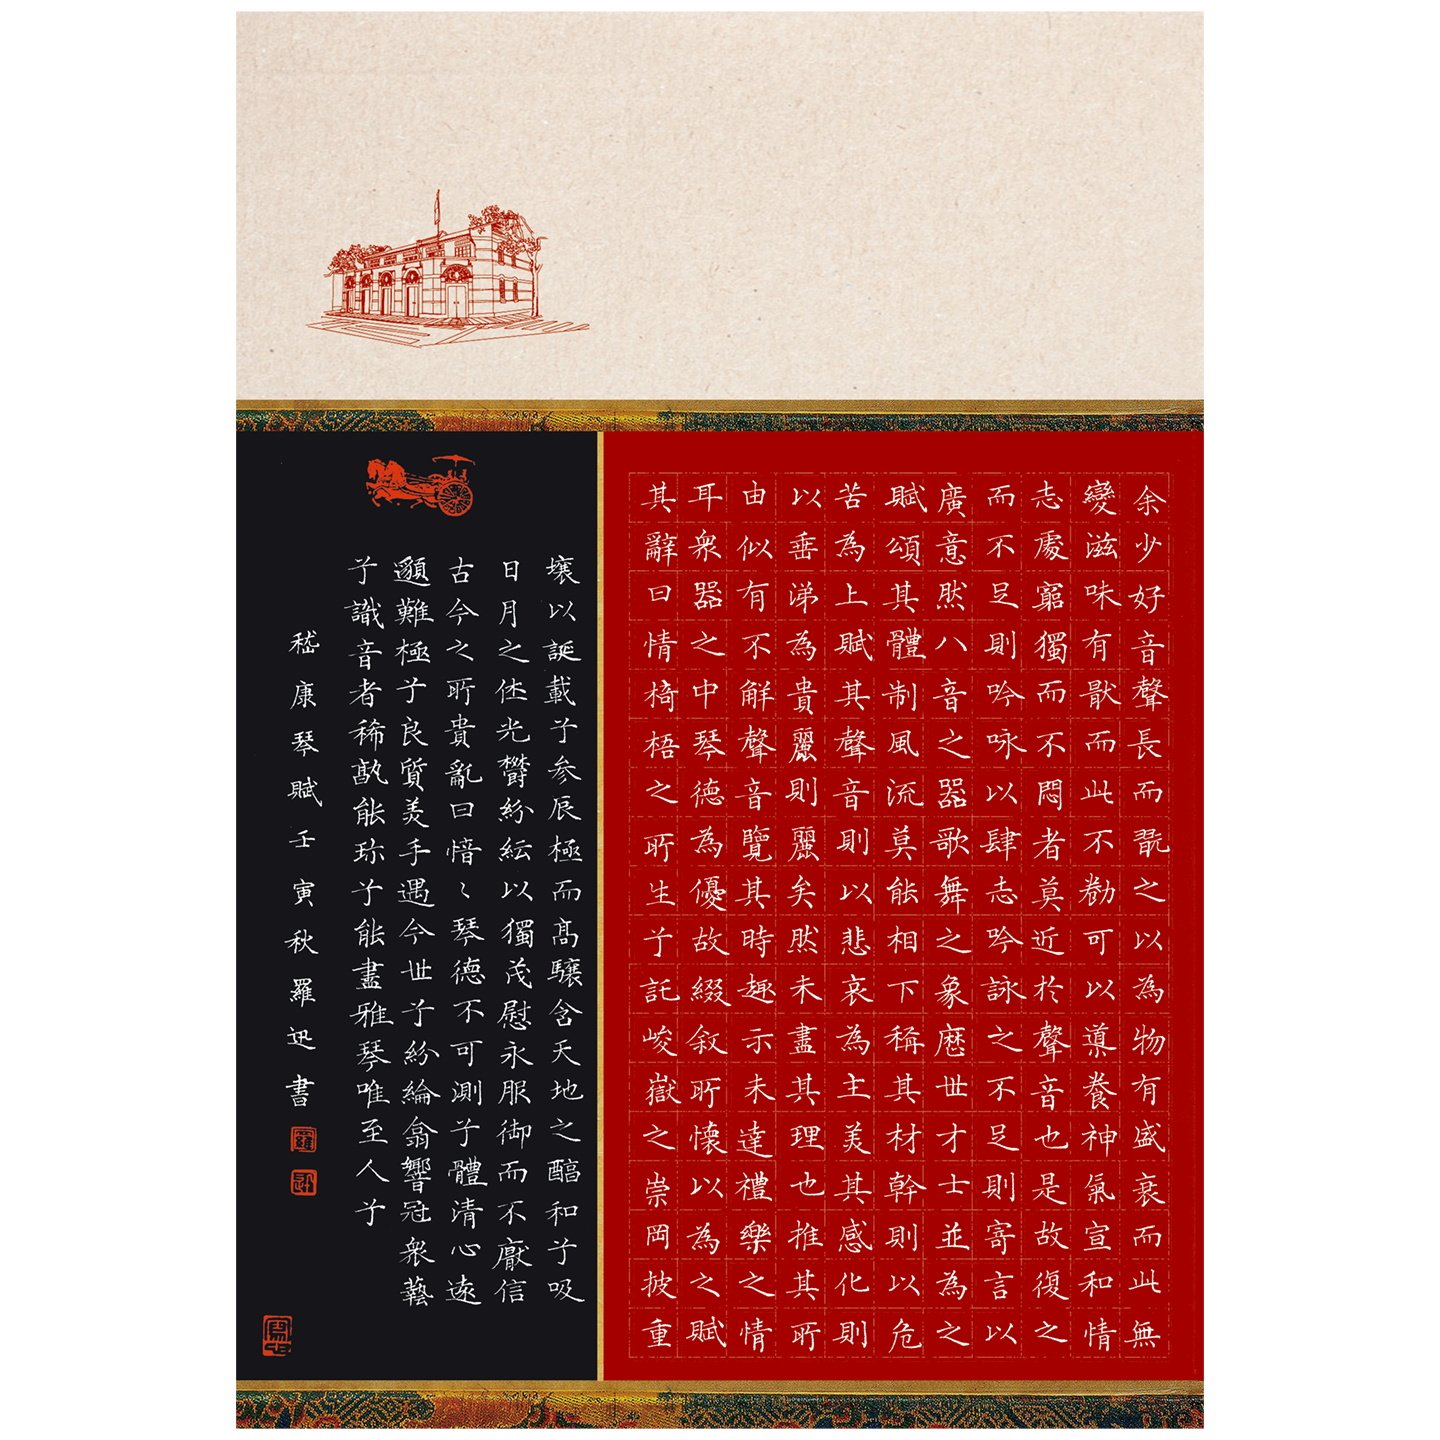 余少好音聲長而翫之以為物有盛衰而此無
變滋味有猒而此不勌可以導養神氣宣和情
志處窮獨而不悶者莫近於聲音也是故復之
而不足則吟咏以肆志吟詠之不足則寄言以
廣意然八音之器歌舞之象厯世才士並為之
賦頌其體制風流莫能相下稱其材幹則以危
苦為上賦其聲音則以悲哀為主美其感化則
以垂涕為貴麗則麗矣然未盡其理也推其所
由似有不解聲音覽其時趣示未達禮樂之情
耳衆器之中琴德為優故綴敘所懷以為之賦
其辭曰情椅梧之所生兮託峻嶽之崇岡披重
壤以誕載兮參辰極而高驤含天地之醕和兮吸
日月之休光鬱紛紜以獨茂慰永服御而不厭信
古今之所貴亂曰愔〻琴德不可測兮體清心遠
邈難極兮良質美手遇今世兮紛綸翕響冠衆藝
兮識音者稀孰能珍兮能盡雅琴唯至人兮
嵇康琴賦壬寅秋羅迅書
羅
迅